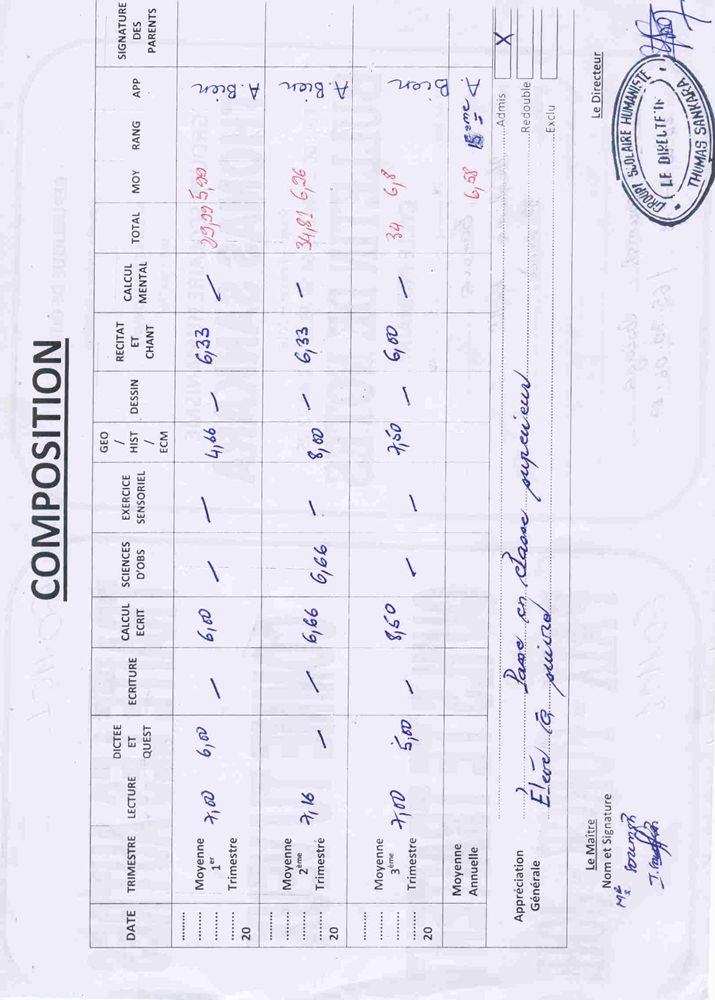 COMPOSITION
DATE TRIMESTRE LECTURE DICTEE ET QUEST ECRITURE CALCUL ECRIT SCIENCES D'OBS EXERCICE SENSORIEL GEO / HIST / ECM DESSIN RECITAT ET CHANT CALCUL MENTAL TOTAL MOY RANG APP SIGNATURE DES PARENTS
........ ........ ........ 20 Moyenne 1er Trimestre 7,00 6,00 — 6,00 — — 4,66 — 6,33 — 29,99 5,99 A. Bien
........ ........ ........ 20 Moyenne 2ème Trimestre 7,16 — — 6,66 6,66 — 8,00 — 6,33 — 34,81 6,96 A. Bien
........ ........ ........ 20 Moyenne 3ème Trimestre 7,00 5,00 — 8,50 — — 7,50 — 6,00 — 34 6,8 Bien
Moyenne Annuelle 6,58 15ème = A. Bien
Appréciation Générale Passe en classe supérieur Admis X
Elève à suivre Redouble
Exclu
Le Maître
Nom et Signature
Le Directeur
GROUPE SCOLAIRE HUMANISTE
LE DIRECTEUR
THOMAS SANKARA